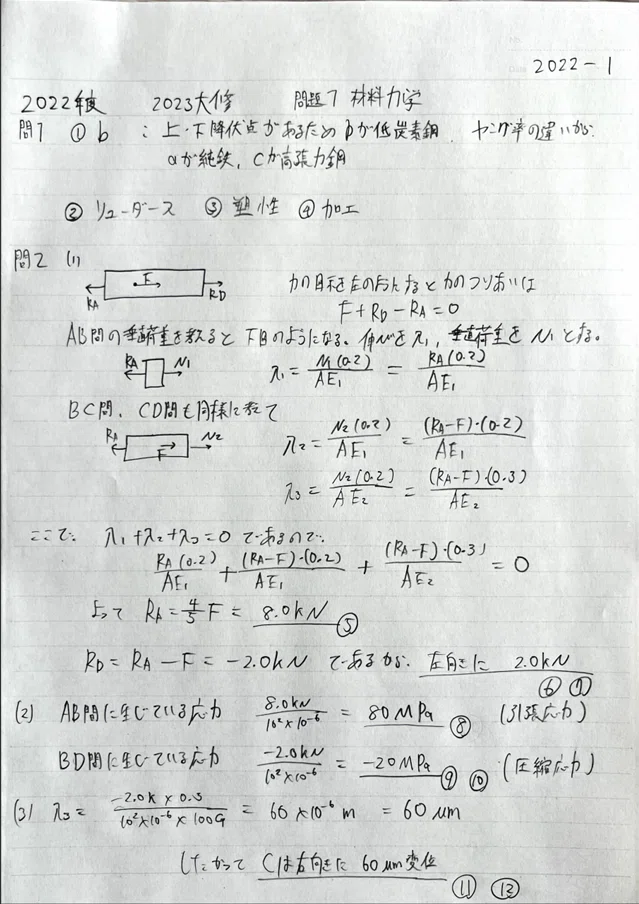 2022-1
2022年度 2023大修 問題7 材料力学
問1 ① b : 上・下降伏点があるためbが低炭素鋼. ヤング率の違いから
aが純鉄, cが高張力鋼
② リューダース ③ 塑性 ④ 加工
問2 (1)
F RA RD
力の目標を左の
なると力のつりあいは
F+RD-RA=0
AB間の垂直荷重を考えると下図のようになる。伸びをλ1, 垂直荷重をN1とする。
RA N1 λ1 = N1(0.2)/AE1 = RA(0.2)/AE1
BC間, CD間も同様に考えて
RA F N2 λ2 = N2(0.2)/AE1 = (RA-F)・(0.2)/AE1
λ3 = N2(0.2)/AE2 = (RA-F)・(0.3)/AE2
ここで. λ1+λ2+λ3=0 であるので.
RA(0.2)/AE1 + (RA-F)・(0.2)/AE1 + (RA-F)・(0.3)/AE2 = 0
よって RA=4/5 F = 8.0kN ⑤
RD=RA-F=-2.0kN であるから. 左向きに 2.0kN ⑥ ⑦
(2) AB間に生じている応力 8.0kN/10²×10⁻⁶ = 80MPa ⑧ (引張応力)
BD間に生じている応力 -2.0kN/10²×10⁻⁶ = -20MPa ⑨ ⑩ (圧縮応力)
(3) λ3 = -2.0k×0.3/10²×10⁻⁶×100G = 60×10⁻⁶m = 60μm
したがって Cは右向きに 60μm変位 ⑪ ⑫